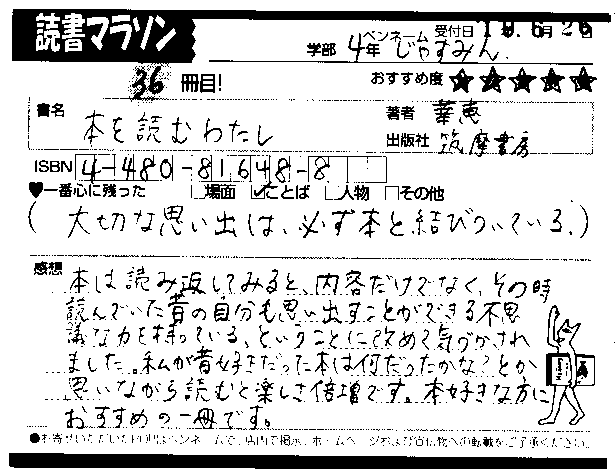 読書マラソン
学部 4年 ペンネーム じゃすみん 受付日 19.6月26日
36 冊目! おすすめ度 ★★★★★
書名 本を読むわたし 著者 華恵
出版社 筑摩書房
ISBN 4-480-81648-8
♥一番心に残った □場面 ☑ことば □人物 □その他
(大切な思い出は、必ず本と結びついている。)
感想
本は読み返してみると、内容だけでなく、その時
読んでいた昔の自分も思い出すことができる不思
議な力を持っている、ということに改めて気づかされ
ました。私が昔好きだった本は何だったかな?とか
思いながら読むと楽しさ倍増です。本好きな方に
おすすめの一冊です。
●お寄せいただいたPOPはペンネームで、店内で掲示、ホームページおよび宣伝物への転載をご了承ください。